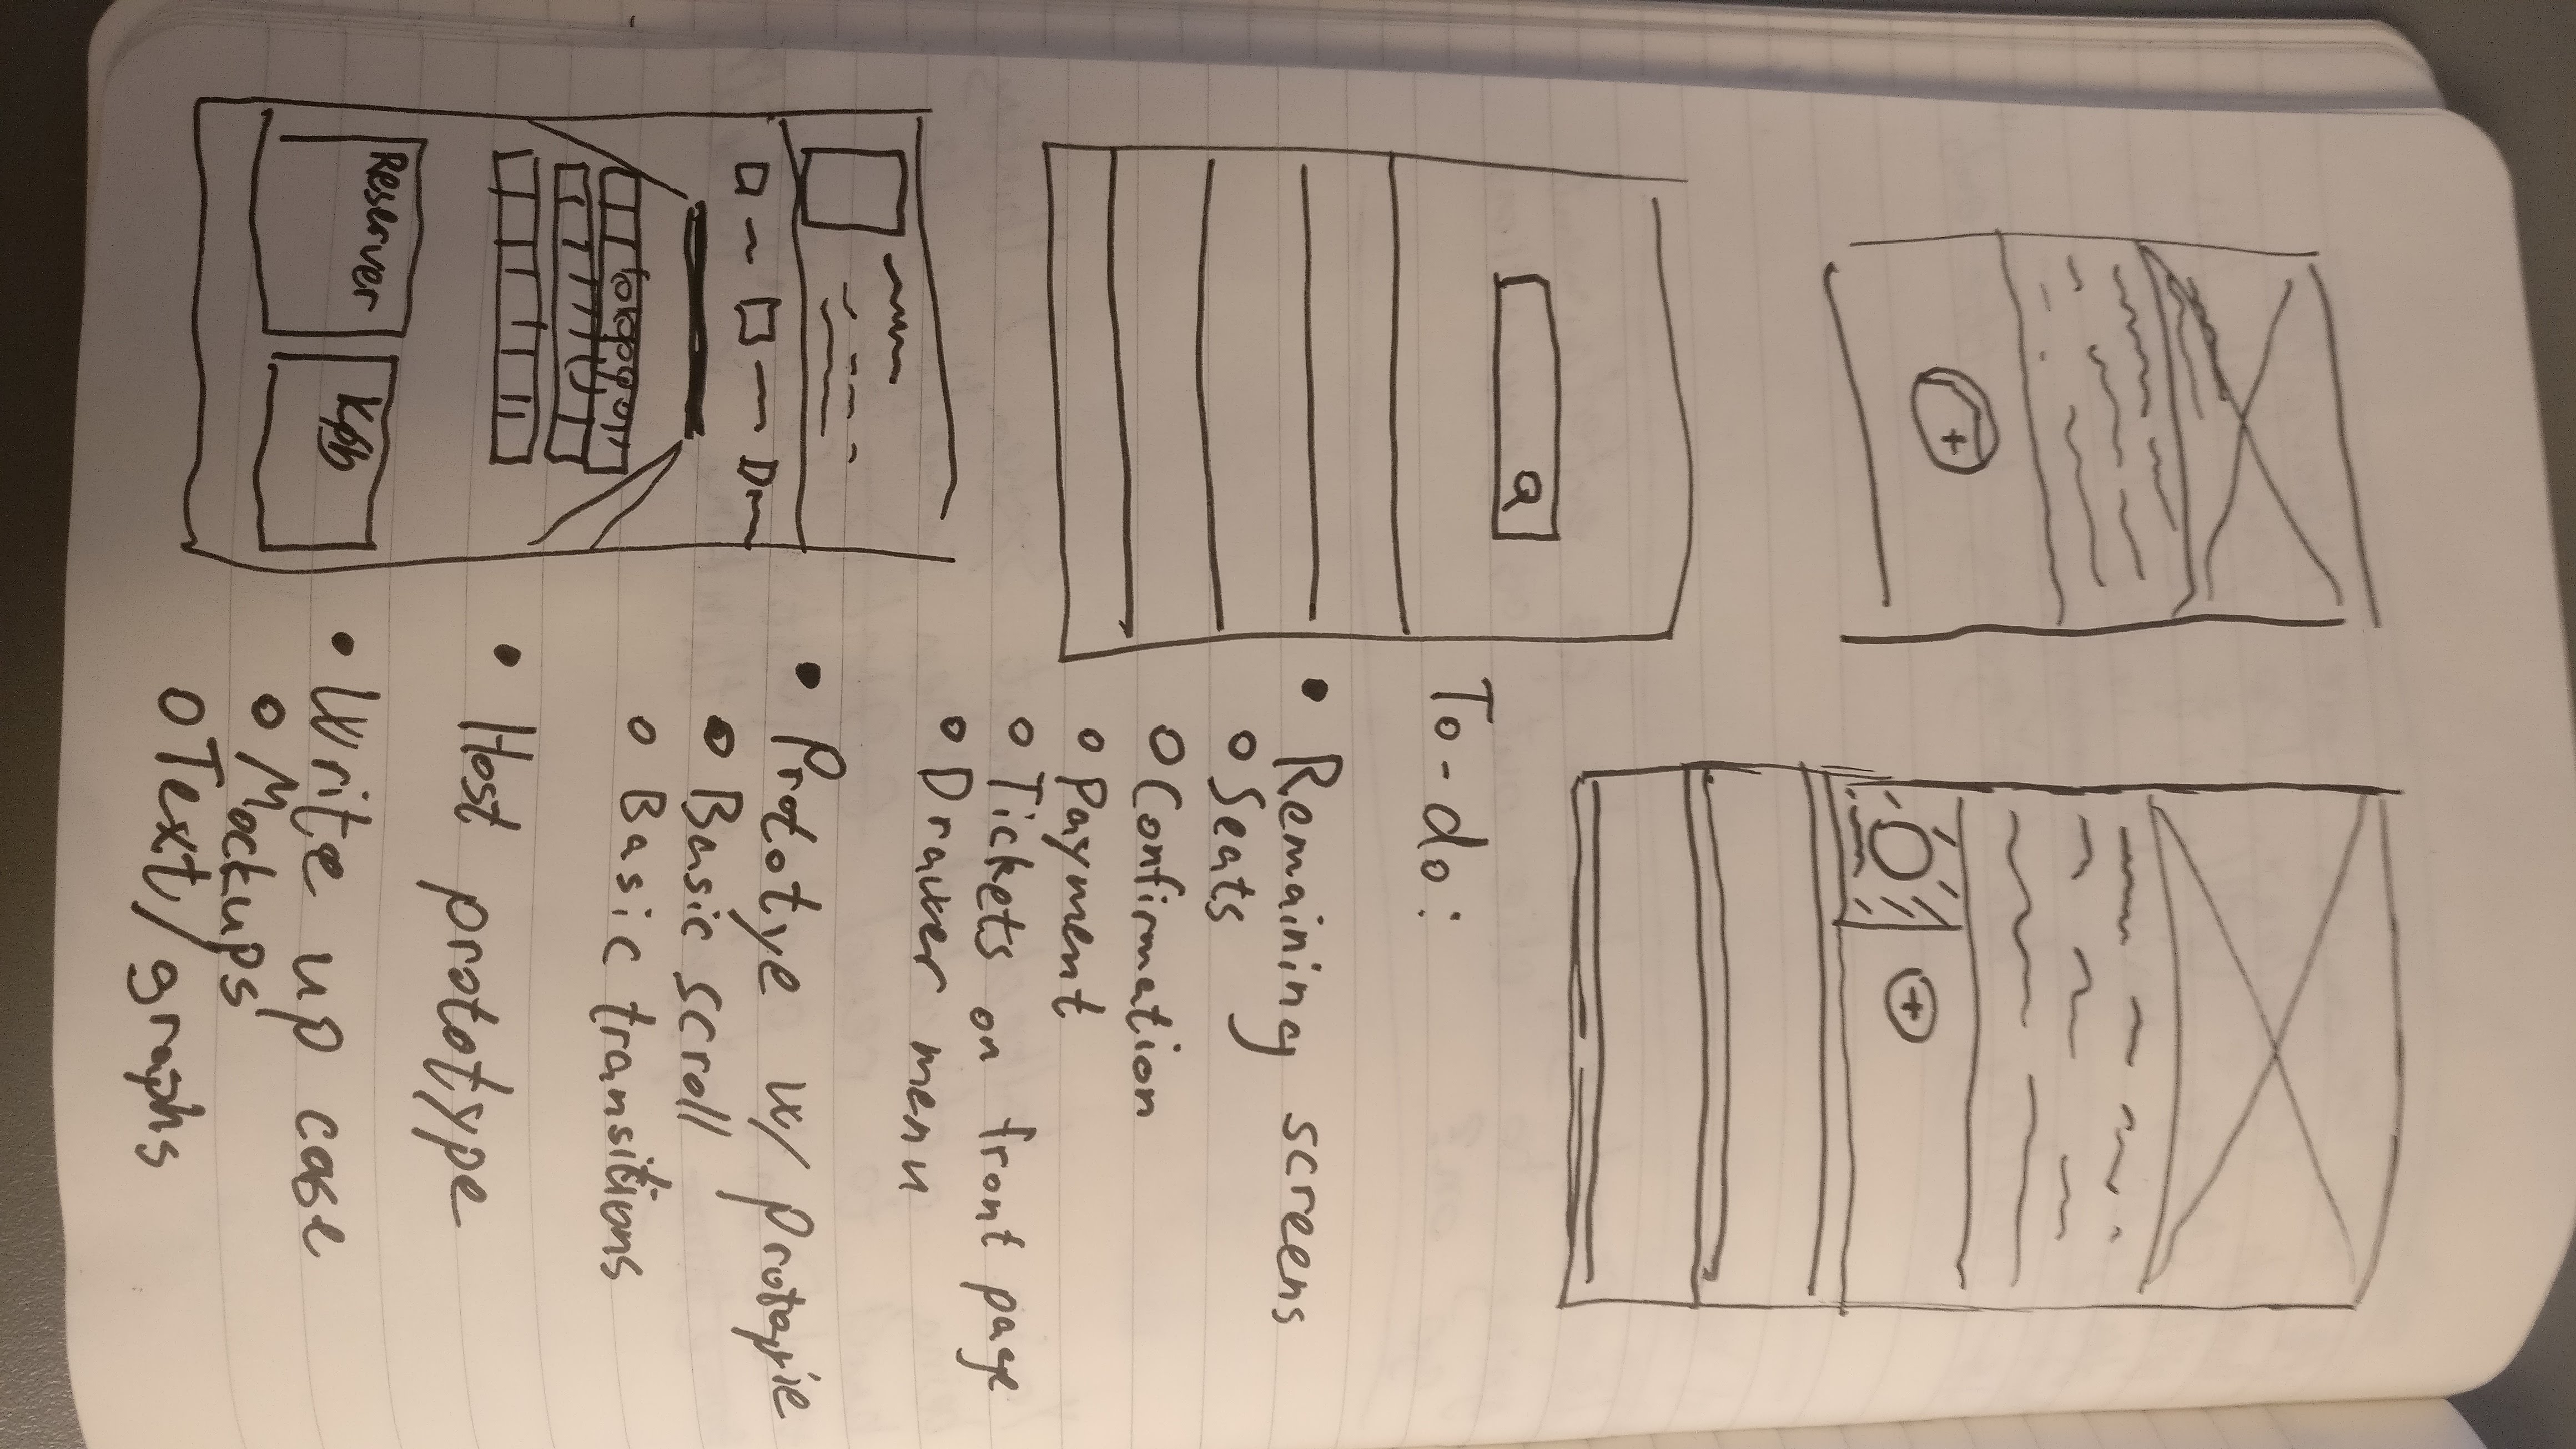 To-do:
• Remaining screens
o Seats
o Confirmation
o Payment
o Tickets on front page
o Drawer menu
• Prototye w/ protopie
o Basic scroll
o Basic transitions
• Host prototype
Reserver
Køb
• Write up case
o Mockups
o Text/graphs